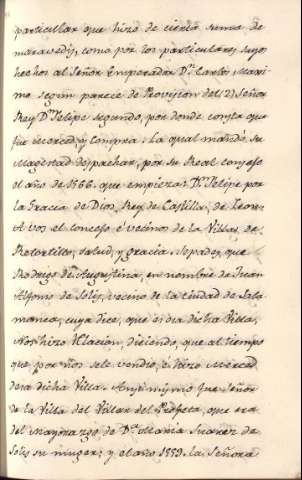 particular que hizo de cierta suma de
maravedis, como por los particulares suyos
hechos al Señor Emperador Dn. Carlos Maxi
mo segun parece de Provision del Señor
Rey Dn. Felipe segundo, por donde consta que
fue merced y compra: La qual mandó su
Magestad despachar, por su Real consejo
el año de 1566. que empieza: Dn. Felipe por
la Gracia de Dios, Rey de Castilla, de Leon
A vos el concejo é vecinos de la Villa de
Retortillo, salud, y gracia. Sepades, que
Rodrigo de Augustina, en nombre de Juan
Alfonso de Solis, vecino de la ciudad de Sala
manca, cuya dice, que es dicha Villa,
Nos hizo Relacion, diciendo, que al tiempo
que por nos se le vendió, é hizo Merced
de la dicha Villa. Assimismo fue Señor
de la Villa del Villar del Profeta, que era
del Mayorazgo de Da. Maria Suarez de
Solis su muger; y el año 1559. la Señora